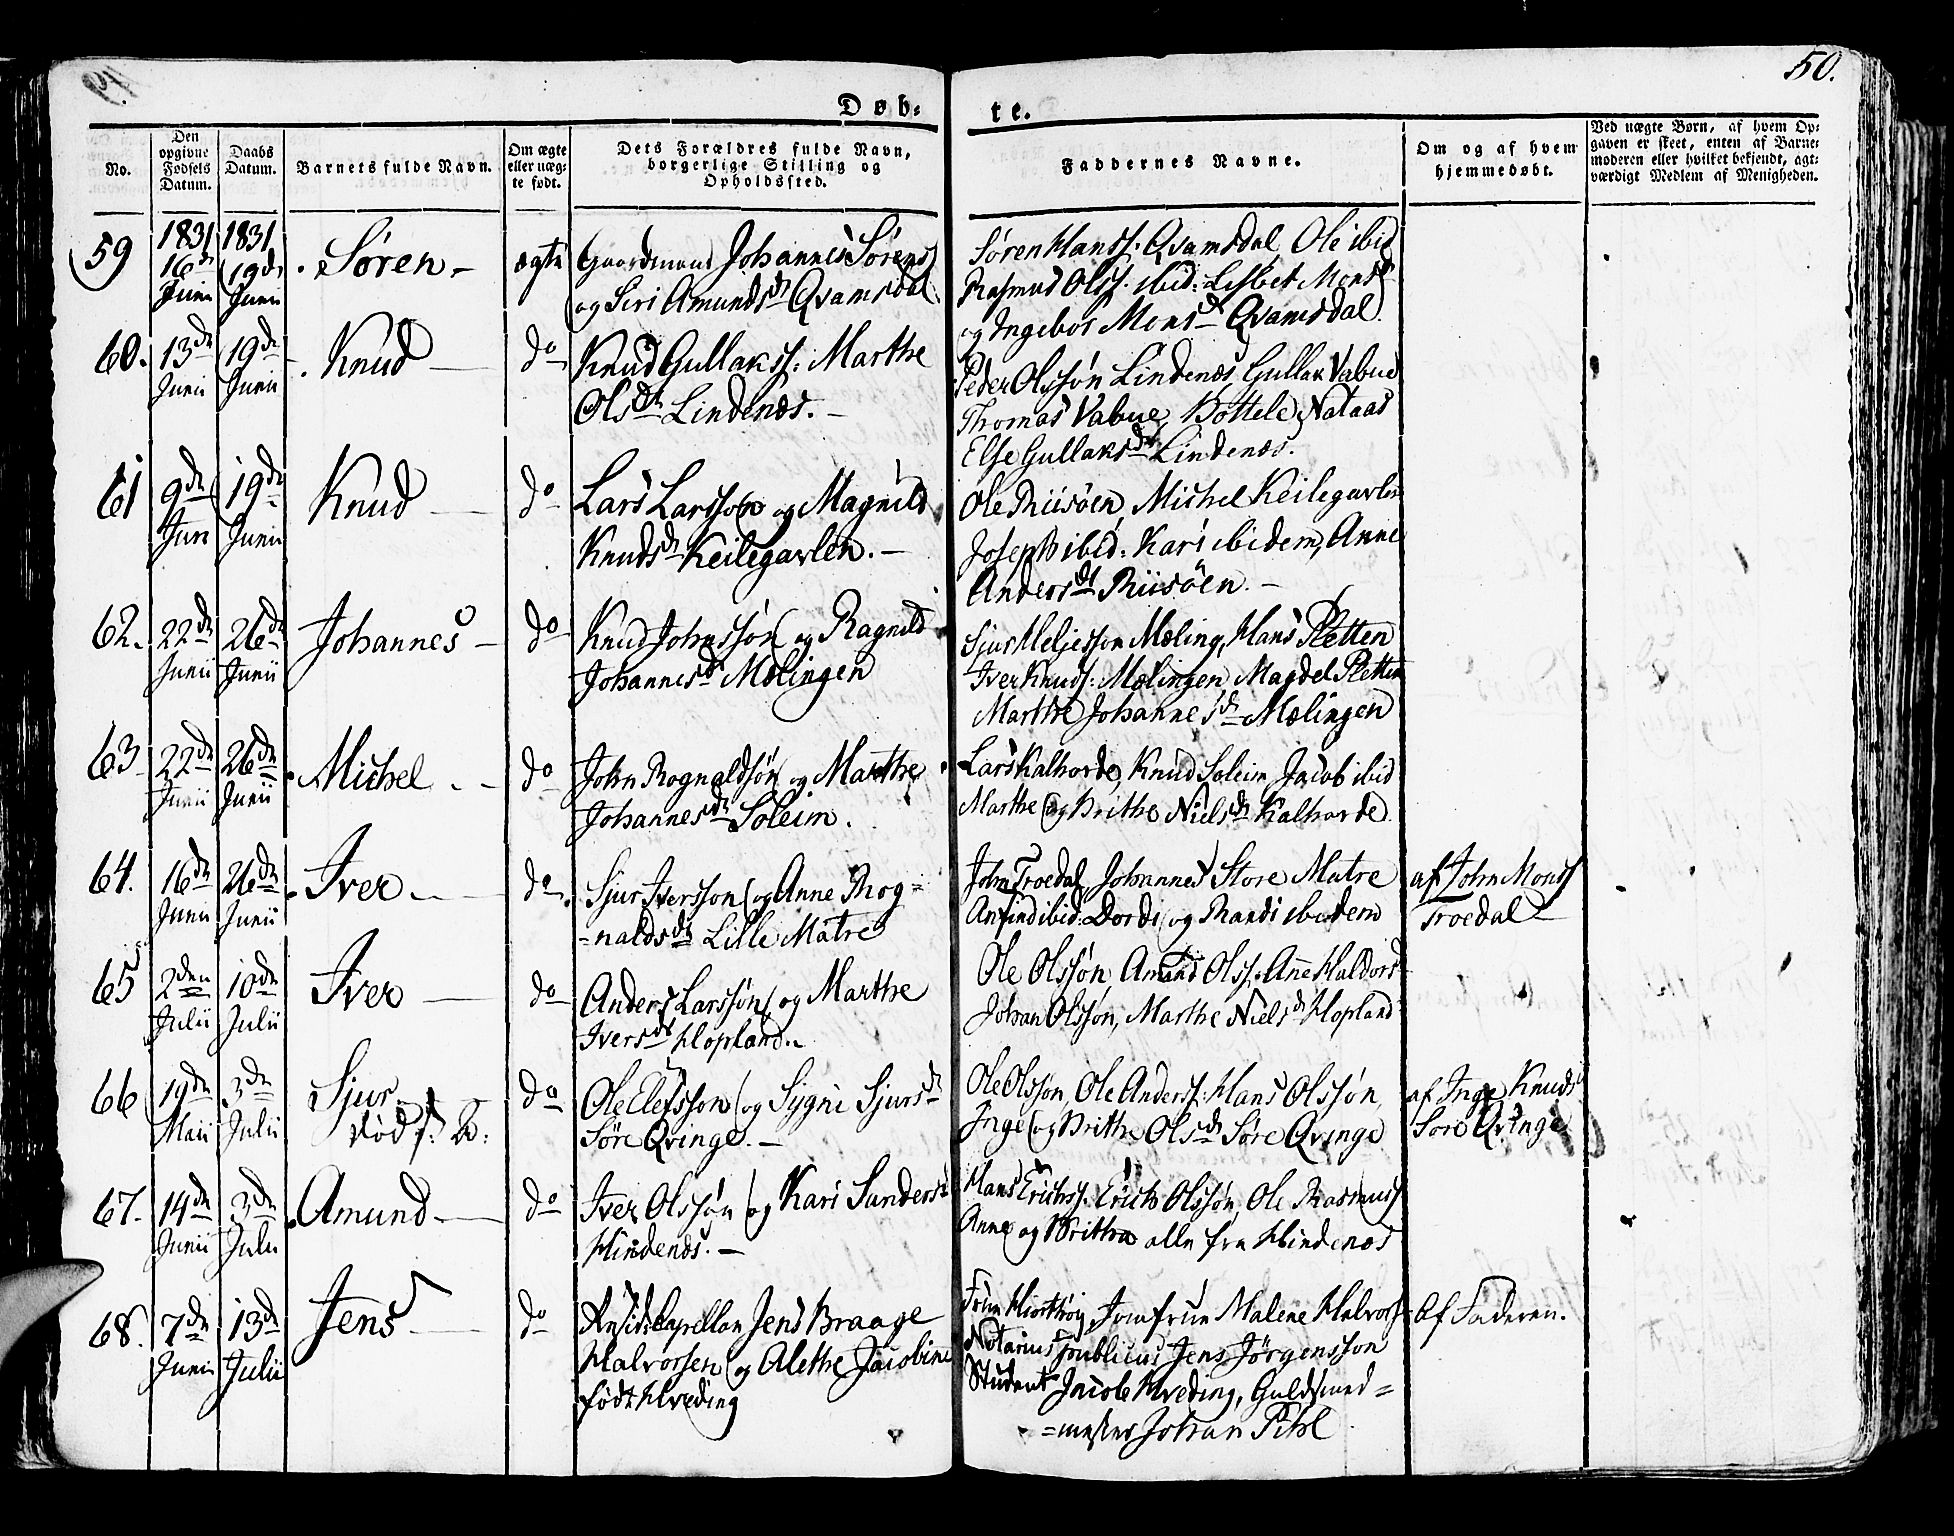 50.
Døb=
te.
No.
Den
opgivne
Fødsels
Datum.
Daabs
Datum.
Barnets fulde Navn.
Om ægte
eller uæg-
te født.
Dets Forældres fulde Navn,
borgerlige Stilling og
Opholdssted.
Faddernes Navne.
Om og af hvem
hjemmedøbt.
Ved uægte Børn, af hvem Op-
gaven er skeet, enten af Barne-
moderen eller hvilket bekjendt, agt-
værdigt Medlem af Menigheden.
59
1831
16de
Junii
1831
19de
Junii
Søren
ægte
Gaardmand Johannes Sørens
og Siri Amundsdr Qvamsdal
Søren Hanss: Qvamsdal, Ole ibid
Rasmus Olss. ibid: Lisbet Monsdr
og Ingebor Monsdr Qvamsdal.
60.
13de
Junii
19de
Junii
Knud
do
Knud Gullakss: Marthe
Olsdr Lindenæs.
Peder Olssøn Lindenæs, Gullak Vabue
Thomas Vabue, Bottele Nataas
Else Gullaksdr Lindenæs.
61
9de
Juni
19de
Junii
Knud
do
Lars Larssøn og Magnild
Knudsdr Keilegavlen.
Ole Riisøen, Michel Keilegavlen
Joseph ibid: Kari ibidem, Anne
Andersdr Riisøen.
62.
22de
Junii
26de
Junii
Johannes
do
Knud Johnssøn og Ragnild
Johannesdr Mælingen
Sjur Heljesson Mæling, Hans Sletten
Iver Knuds: Mælingen, Magdel Sletten
Marthe Johannesdr Mælingen
63
22de
Junii
26de
Junii
Michel
do
John Rognaldsøn og Marthe
Johannesdr Soleim.
Lars Kalhorde, Knud Soleim, Jacob ibid
Marthe og Brithe Nielsdr Kalhorde.
64.
16de
Junii
26de
Junii
Iver
do
Sjur Iversson og Anne Rog=
=naldsdr Lille Matre
John Troedal, Johannes Store Matre
Anfind ibid: Dordi og Randi ibidem
af John Monss
Troedal
65
2den
Julii
10de
Julii
Iver
do
Anders Larssøn, og Marthe
Iversdr Hopland.
Ole Olssøn, Amund Olss: Anne Haldorsd
Johan Olssøn, Marthe Nielsdr Hopland
66
19de
Maii
3de
Julii
Sjur
død
do
Ole Elefsson og Sygni Sjursdr
Søre Qvinge.
Ole Olsson, Ole Anderss: Hans Olssøn,
Inge og Brithe Olsdr Søre Qvinge
af Inge Knuds
Søre Qvinge
67.
14de
Junii
3de
Julii
Amund
do
Iver Olssøn og Kari Sundersd
Hindenæs.
Hans Erichss: Erich Olssøn, Ole Rasmuss
Anne og Brithe alle fra Hindenæs
68.
7de
Junii
13de
Julii
Jens
do
Resid: Capellan Jens Braage
Halvorsen og Alethe Jacobine
født Hveding
Frue Hiorthøg, Jomfrue Malene Halvors:
Notarius publicus Jens Jörgensson
Student Jacob Hveding, Guldsmed=
=mester Johan Pihl
Af Faderen.